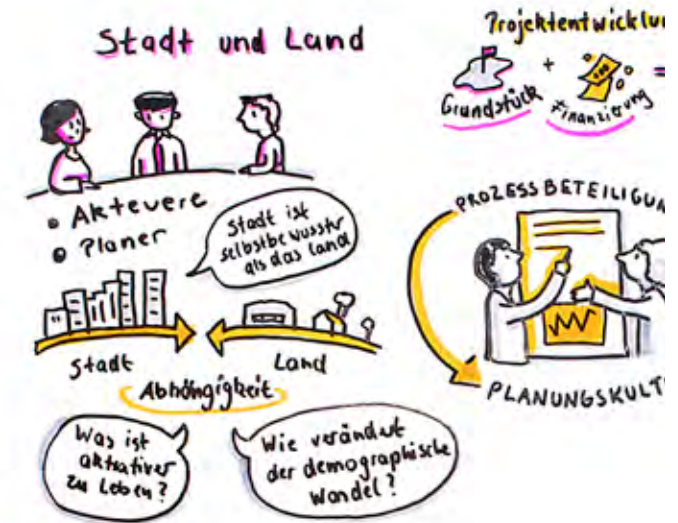 Stadt und Land
Akteuere
Planer
Stadt ist
selbstbewusster
als das Land
Stadt
Land
Abhängigkeit
Was ist
aktrativer
zu Leben?
Wie verändert
der demographische
Wandel?
Projektentwicklun
+
=
Grundstück
Finanzierung
PROZESSBETEILIGUN
PLANUNGSKULT